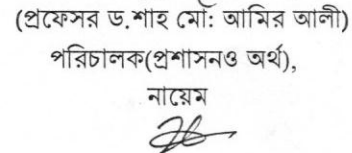 (প্রফেসর ড.শাহ মোঁ: আমির আলী)
পরিচালক(প্রশাসনও অর্থ),
নায়েম